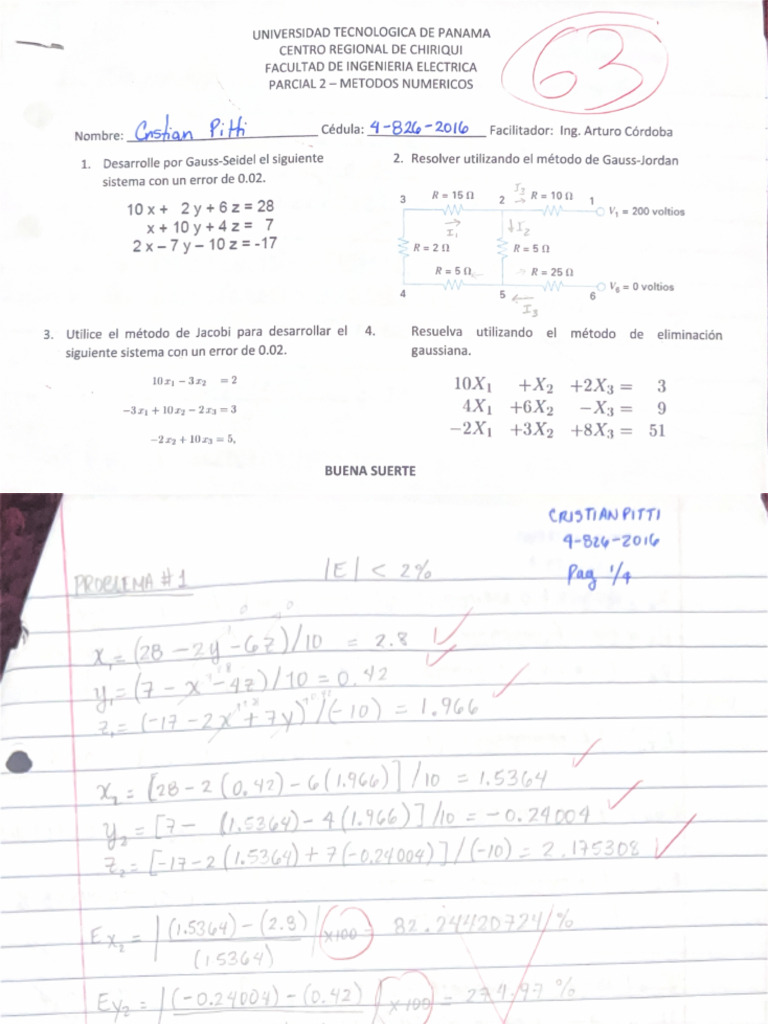 UNIVERSIDAD TECNOLOGICA DE PANAMA
CENTRO REGIONAL DE CHIRIQUI
FACULTAD DE INGENIERIA ELECTRICA
PARCIAL 2 – METODOS NUMERICOS
63
Nombre: Cristian Pitti Cédula: 4-826-2016 Facilitador: Ing. Arturo Córdoba
1. Desarrolle por Gauss-Seidel el siguiente
sistema con un error de 0.02.
10 x + 2 y + 6 z = 28
x + 10 y + 4 z = 7
2 x – 7 y – 10 z = -17
2. Resolver utilizando el método de Gauss-Jordan
3 R = 15 Ω 2 I3 R = 10 Ω 1
V1 = 200 voltios
I1 I2
R = 2 Ω R = 5 Ω
R = 5 Ω R = 25 Ω
V6 = 0 voltios
4 5 6
I3
3. Utilice el método de Jacobi para desarrollar el
siguiente sistema con un error de 0.02.
10x1 − 3x2 = 2
−3x1 + 10x2 − 2x3 = 3
−2x2 + 10x3 = 5,
4. Resuelva utilizando el método de eliminación
gaussiana.
10X1 +X2 +2X3 = 3
4X1 +6X2 −X3 = 9
−2X1 +3X2 +8X3 = 51
BUENA SUERTE
CRISTIAN PITTI
4-826-2016
Pag 1/4
PROBLEMA #1 |E| < 2%
x1 = (28 − 2y − 6z)/10 = 2.8
y1 = (7 − x − 4z)/10 = 0.42
z1 = (-17 − 2x + 7y)/(-10) = 1.966
x2 = [28 − 2(0.42) − 6(1.966)]/10 = 1.5364
y2 = [7 − (1.5364) − 4(1.966)]/10 = −0.24004
z2 = [-17 − 2(1.5364) + 7(-0.24004)]/(-10) = 2.175308
Ex2 = |(1.5364) − (2.8)/(1.5364)| x100 = 82.24420724%
Ey2 = |(-0.24004) − (0.42)| x100 = 274.97%